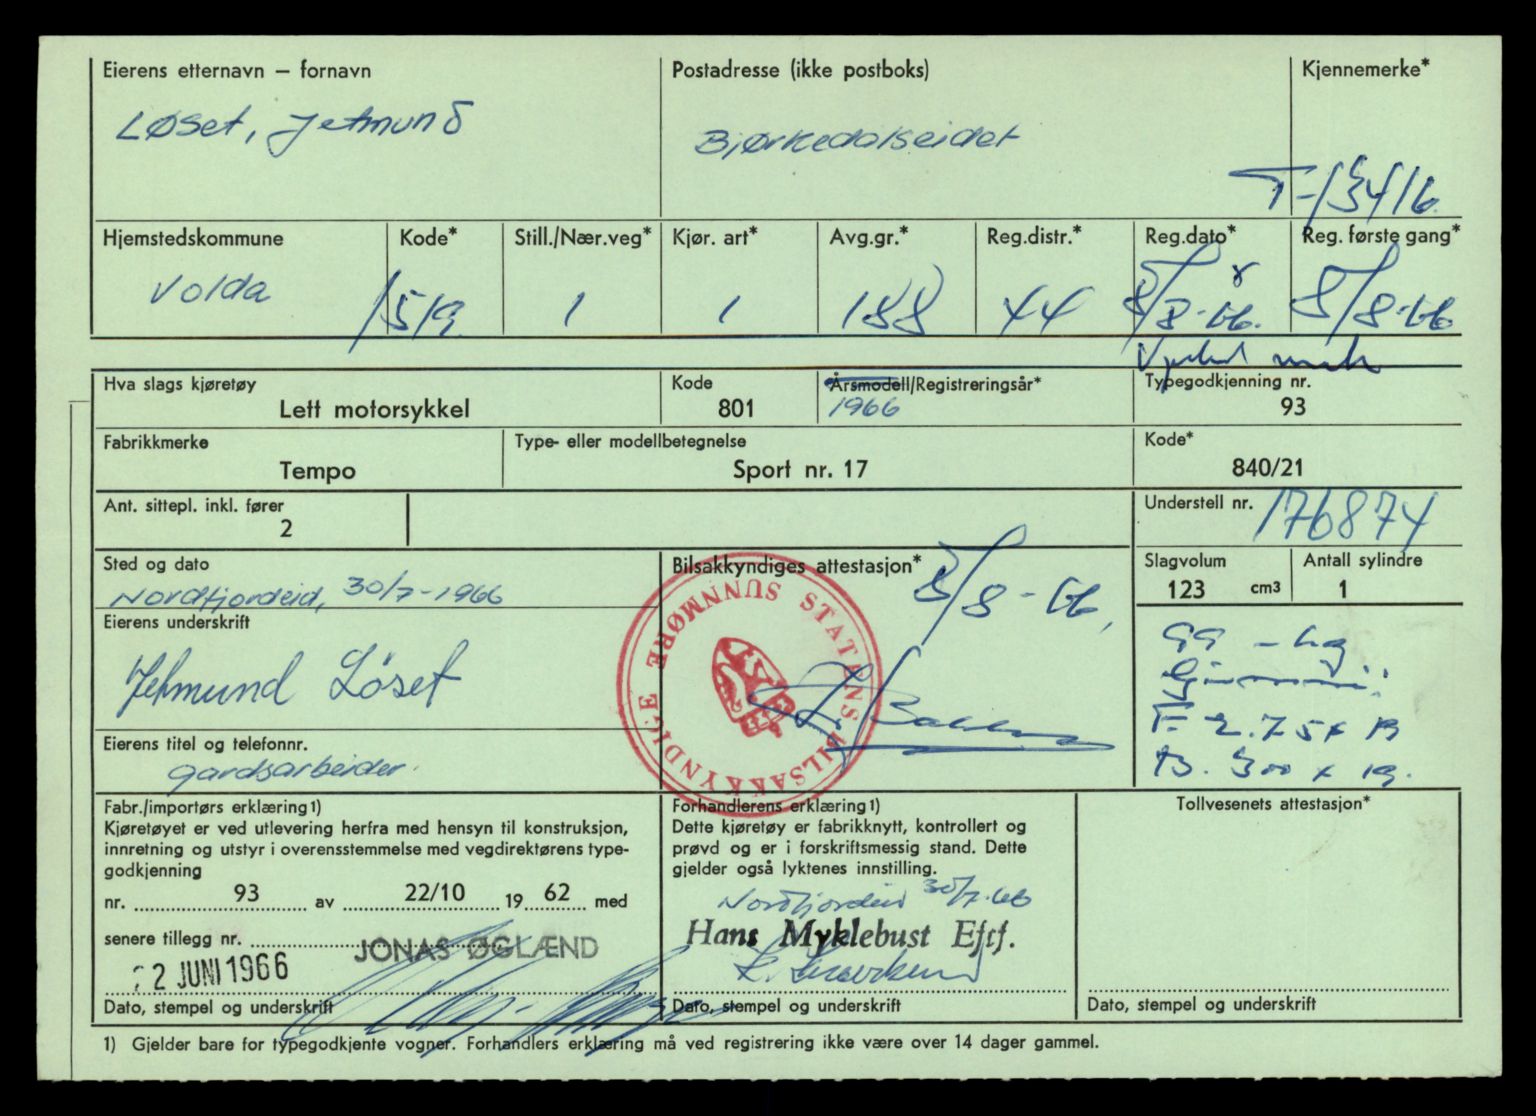 Eierens etternavn – fornavn
Løset, Jetmund
Postadresse (ikke postboks)
Bjørkedalseidet
Kjennemerke*
T-13416
Hjemstedskommune
Volda
Kode*
1519
Still./Nær.veg*
1
Kjør. art*
1
Avg.gr.*
188
Reg.distr.*
44
Reg.dato*
8/8-66.
Reg. første gang*
8/8-66
Hva slags kjøretøy
Lett motorsykkel
Kode
801
Årsmodell/Registreringsår*
1966
Typegodkjenning nr.
93
Fabrikkmerke
Tempo
Type- eller modellbetegnelse
Sport nr. 17
Kode*
840/21
Ant. sittepl. inkl. fører
2
Understell nr.
176874
Sted og dato
Nordfjordeid, 30/7-1966
Bilsakkyndiges attestasjon*
8/8-66,
STATENS BILSAKKYNDIGE SUNNMØRE
Slagvolum
123 cm3
Antall sylindre
1
Eierens underskrift
Jetmund Løset
99 - kg
F. 2.75 x 19
B. 300 x 19.
Eierens titel og telefonnr.
gardsarbeider.
Fabr./importørs erklæring 1)
Kjøretøyet er ved utlevering herfra med hensyn til konstruksjon,
innretning og utstyr i overensstemmelse med vegdirektørens type-
godkjenning
nr. 93 av 22/10 19 62 med
senere tillegg nr.
JONAS ØGLÆND
2 JUNI 1966
Dato, stempel og underskrift
Forhandlerens erklæring 1)
Dette kjøretøy er fabrikknytt, kontrollert og
prøvd og er i forskriftsmessig stand. Dette
gjelder også lyktenes innstilling.
Nordfjordeid 30/7-66
Hans Myklebust Eftf.
Dato, stempel og underskrift
Tollvesenets attestasjon*
Dato, stempel og underskrift
1) Gjelder bare for typegodkjente vogner. Forhandlers erklæring må ved registrering ikke være over 14 dager gammel.